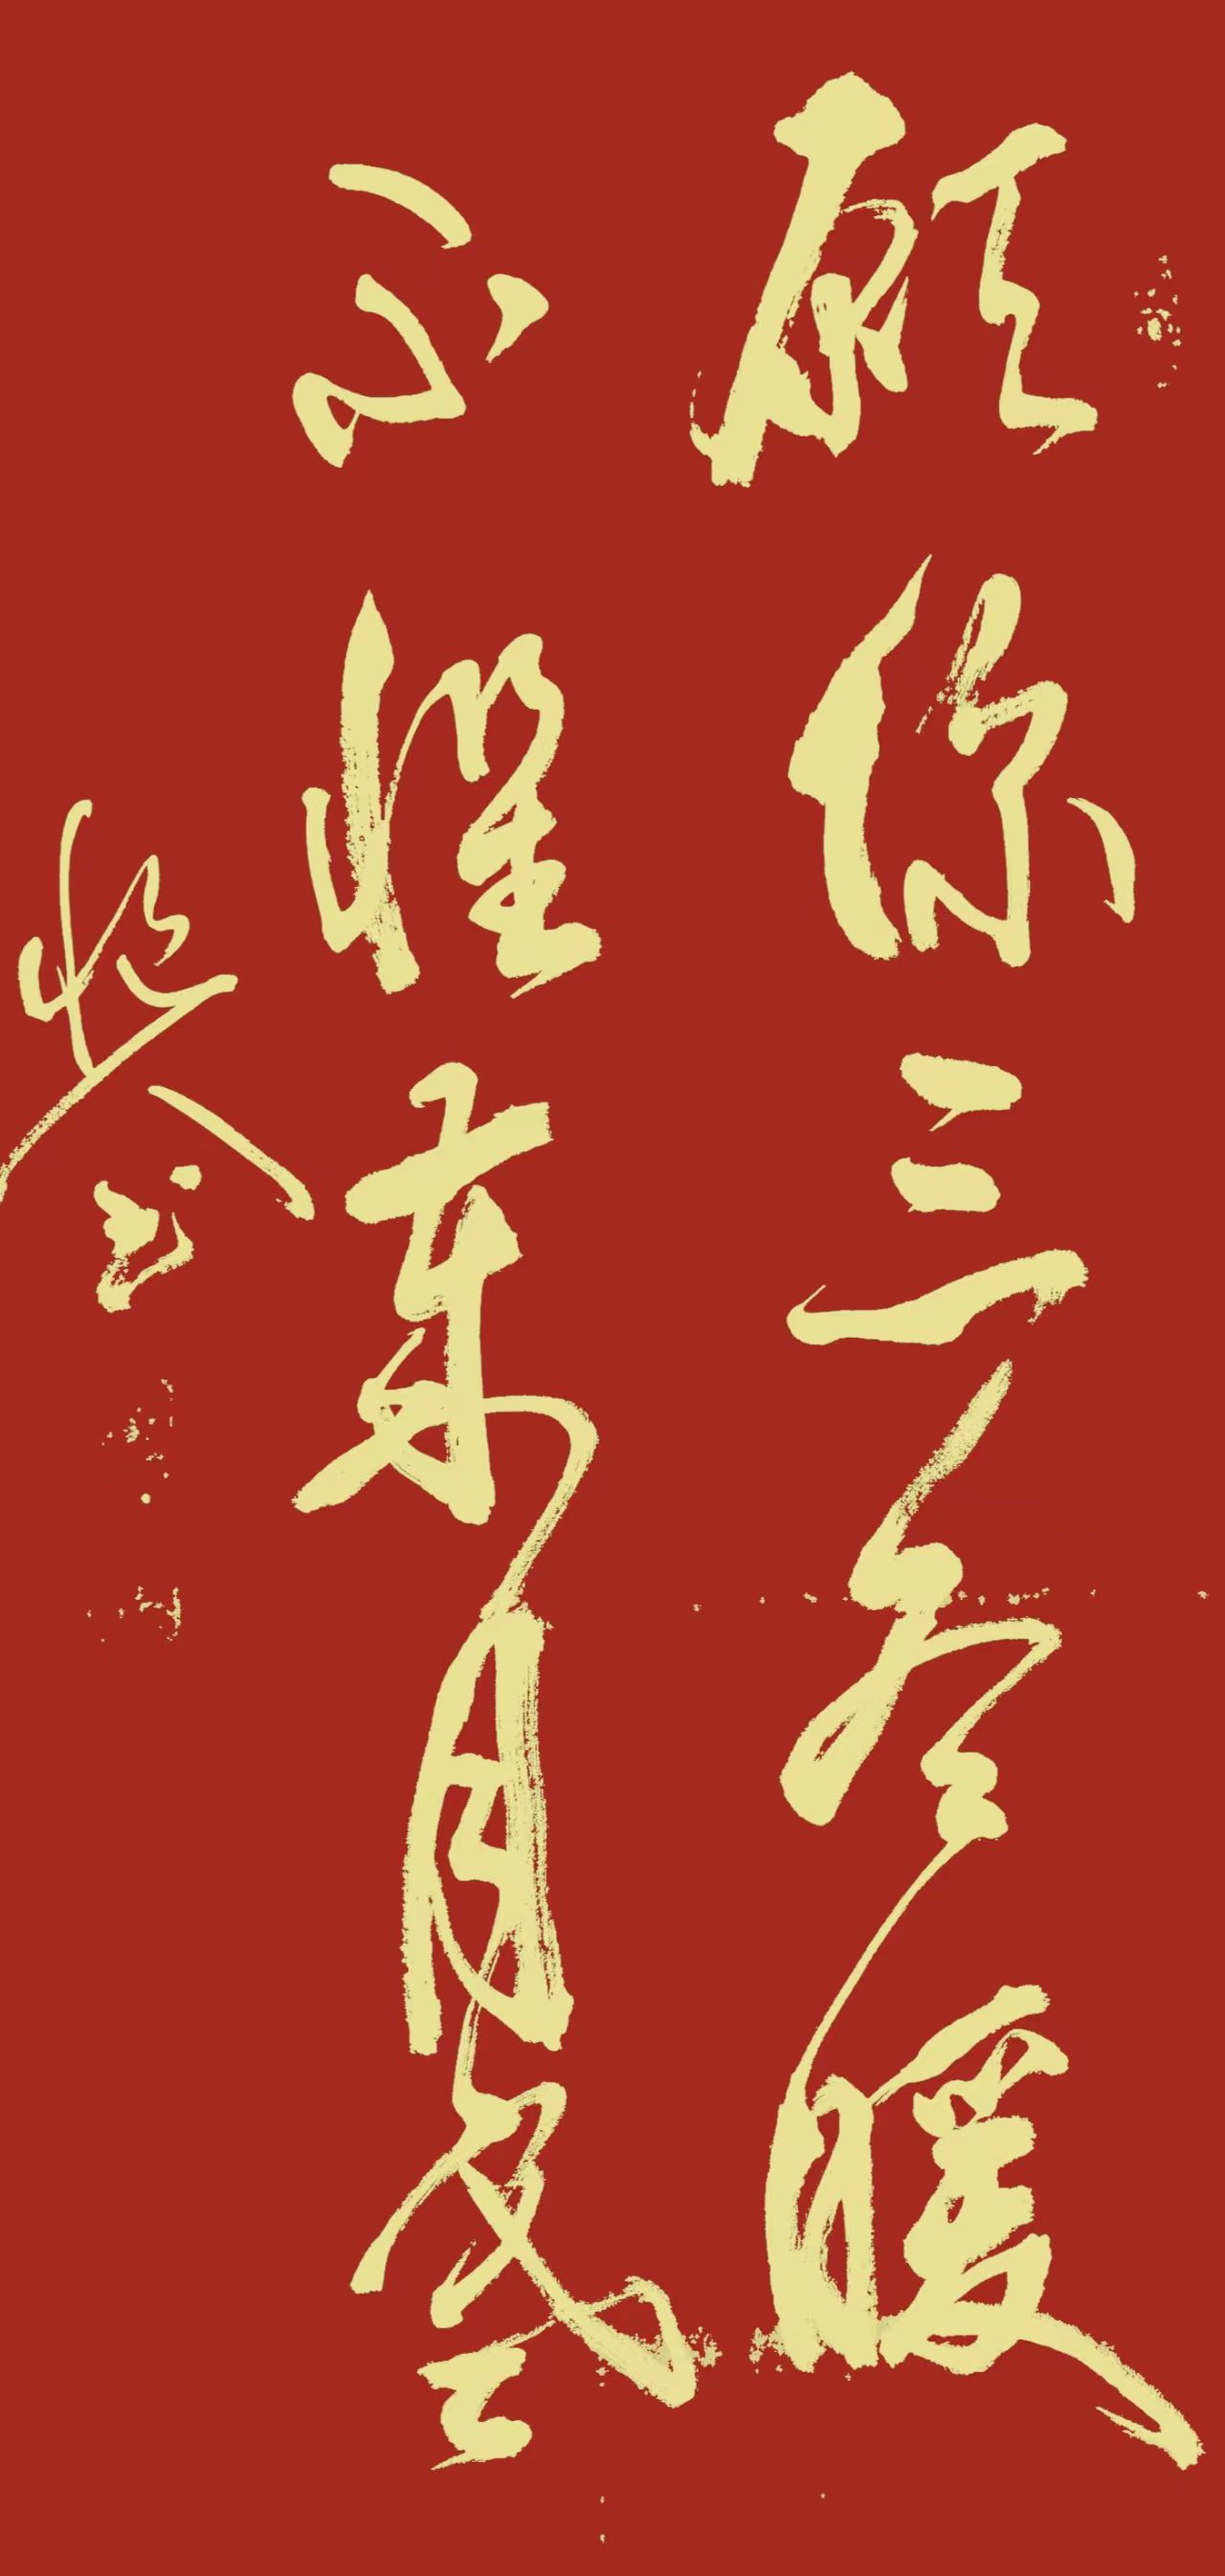 愿你三冬暖
不惧東月寒